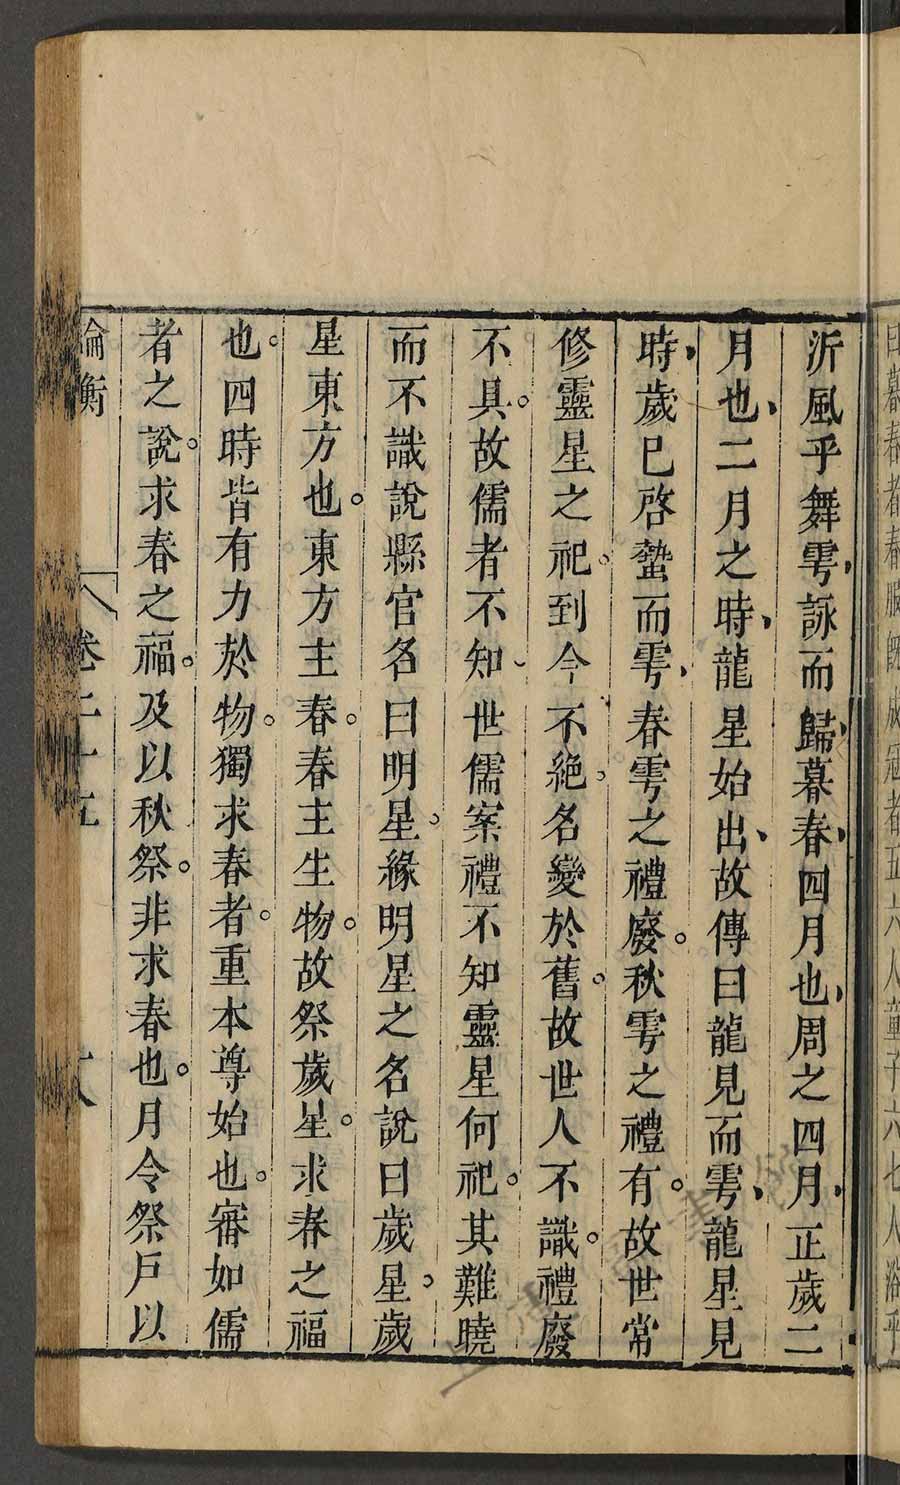 暮春者春服旣成冠者五六人童子六七人浴乎
沂風乎舞雩、詠而歸、暮春、四月也、周之四月、正歲二
月也、二月之時、龍星始出、故傳曰龍見而雩、龍星見
時、歲巳啓蟄而雩、春雩之禮廢。秋雩之禮有。故世常
修靈星之祀。到今不絶。名變於舊。故世人不識。禮廢
不具。故儒者不知、世儒案禮不知靈星何祀。其難曉
而不識說縣官名曰明星。緣明星之名說曰歲星。歲
星東方也。東方主春。春主生物。故祭歲星。求春之福
也。四時皆有力於物。獨求春者。重本尊始也。審如儒
者之說。求春之福。及以秋祭。非求春也。月令祭戶以
論衡 卷二十五